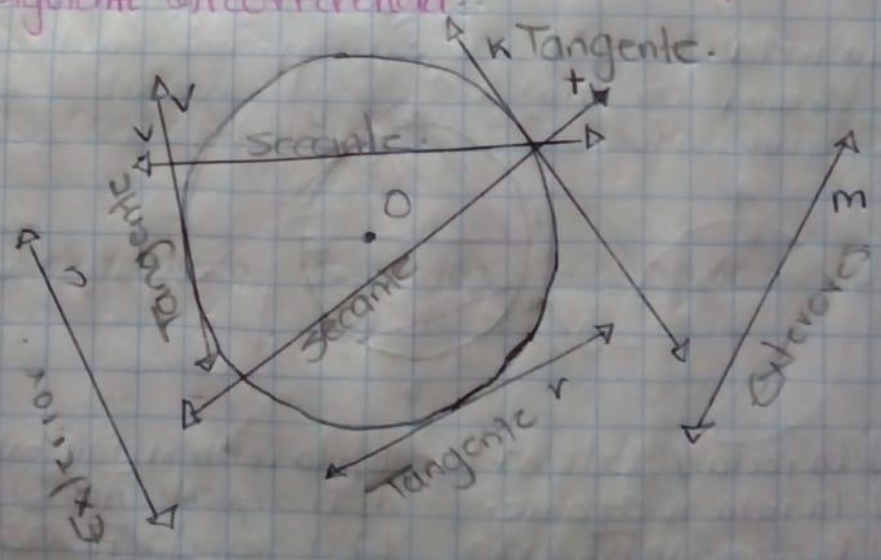 siguiente circunferencia.
K Tangente.
t
V
L
secante.
Tangente
O
secante
m
Exteriores
U
Exterior
Tangente r